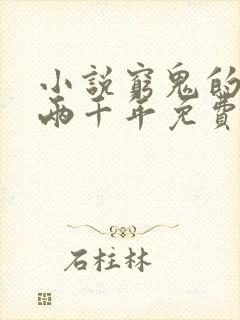 小說窮鬼的
兩千年免費
石柱林